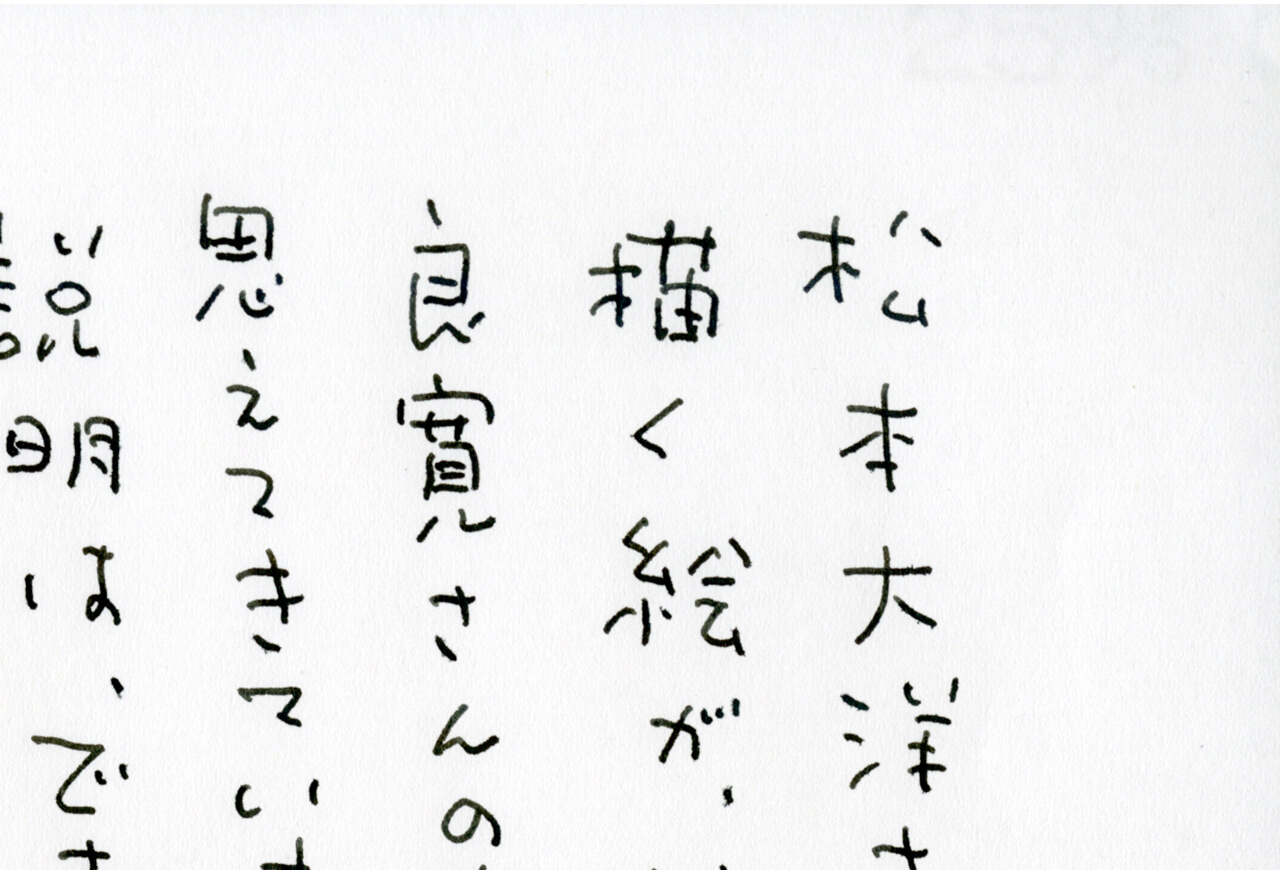 松本大洋さ
描く絵が、
良寛さんの
思えてきてい
説明は、でき